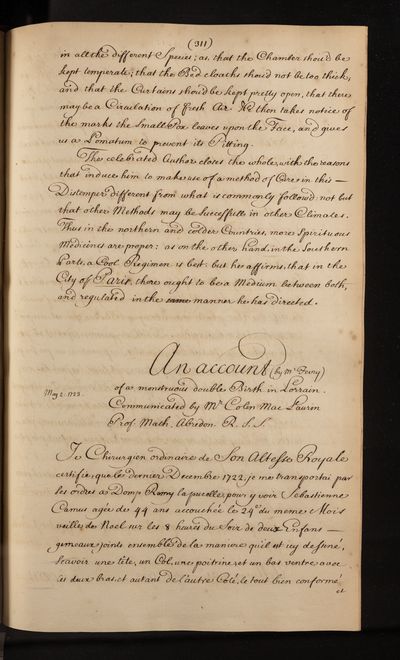 (311)
in all the different Species; as, that the Chamber shou'd be
kept temperate; that the Bed cloaths shou'd not be too thick,
and that the Curtains shou'd be kept pretty open, that there
may be a Circulation of fresh Air. He then takes notice of
the marks the Small Pox leaves upon the Face, and gives
us a Pomatum to prevent its Pitting.
The celebrated Author closes the whole, with the reasons
that induce him to make use of a method of Cure in this —
Distemper different from what is commonly follow'd: not but
that other Methods may be Successfull in other Climates.
Thus in the northern and colder Countries, more Spirituous
Medicines are proper; as on the other hand, in the Southern
Parts, a Cool Regimen is best: but he affirms, that in the
City of Paris, there ought to be a Medium between both,
and regulated in the same manner he has directed.
An account (by Mr
of a monstruous double Birth in Lorrain.
May 2. 1723.
Communicated by Mr Colen Mac Lauren
Prof. Math. Abredon. R. S. S.
Je Chirurgien ordinaire de Son Altesse Royale
certifie, que le dernier Decembre 1722, je me transportai par
les ordres a Domp Remy la pucelle, pour y voir Sebastienne
Camus agée de 44 ans accouchée le 24e du meme Mois
veille de Noel sur les 8 heures du Soir de deux Enfans —
gemeaux joints ensemble de la maniere qu'il est icy dessiné,
Scavoir une tête, un Col, une poitrine et un bas ventre avec
les deux bras, et autant de l'autre Coté, le tout bien conformé
et